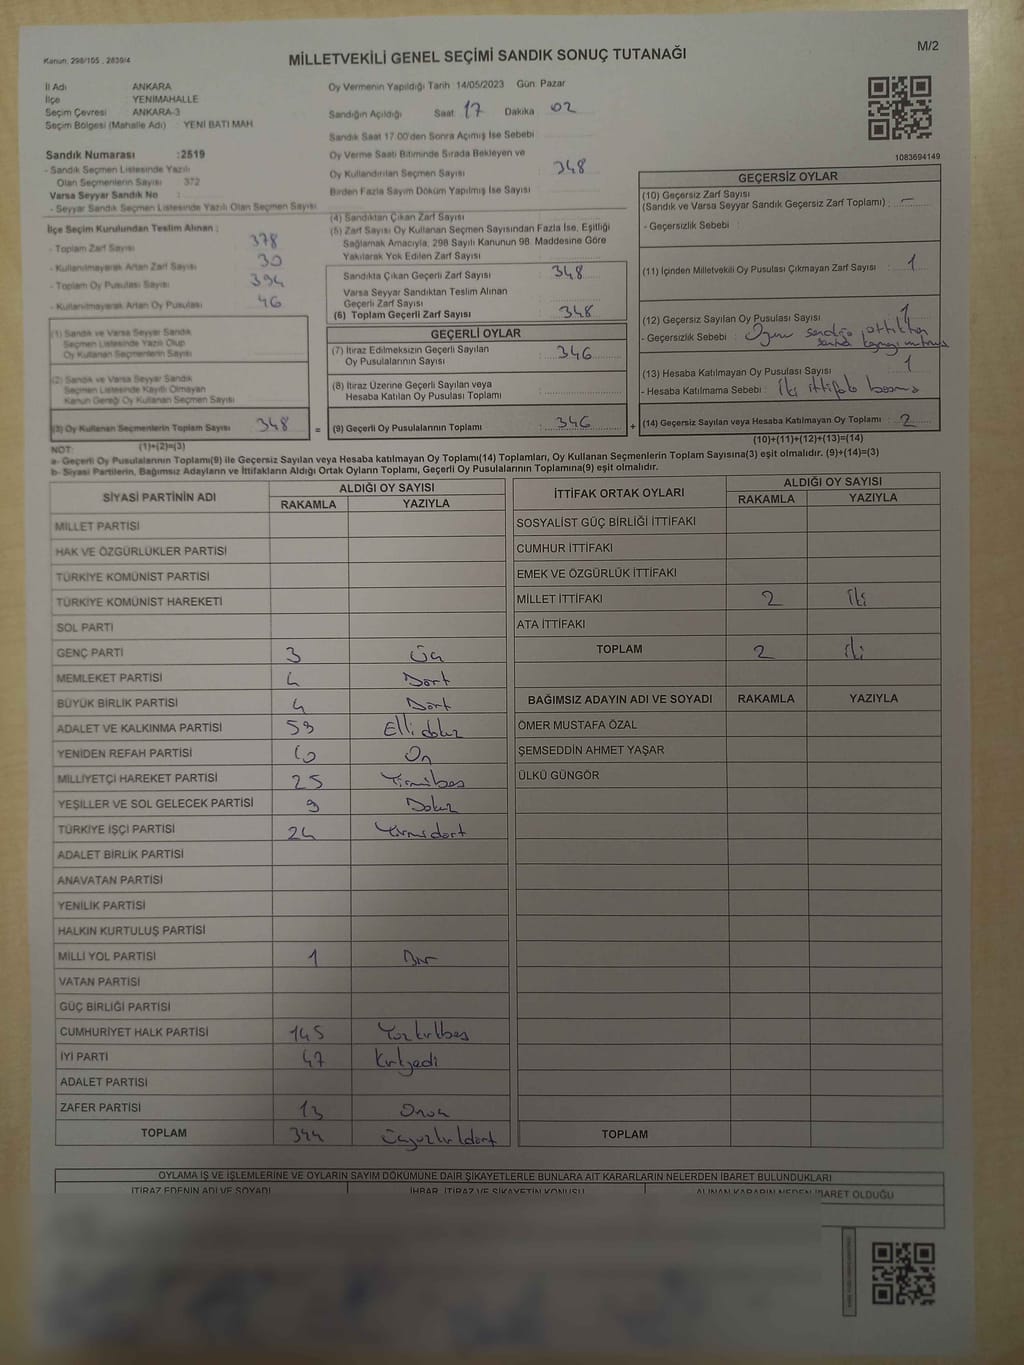 Kanun, 298/105 , 2839/4
MİLLETVEKİLİ GENEL SEÇİMİ SANDIK SONUÇ TUTANAĞI
M/2
İl Adı ANKARA
İlçe YENİMAHALLE
Seçim Çevresi ANKARA-3
Seçim Bölgesi (Mahalle Adı) : YENİ BATI MAH
Sandık Numarası :2519
- Sandık Seçmen Listesinde Yazılı
Olan Seçmenlerin Sayısı : 372
Varsa Seyyar Sandık No :
- Seyyar Sandık Seçmen Listesinde Yazılı Olan Seçmen Sayısı:
İlçe Seçim Kurulundan Teslim Alınan :
- Toplam Zarf Sayısı : 378
- Kullanılmayarak Artan Zarf Sayısı : 30
- Toplam Oy Pusulası Sayısı : 394
- Kullanılmayarak Artan Oy Pusulası : 46
(1) Sandık ve Varsa Seyyar Sandık
Seçmen Listesinde Yazılı Olup
Oy Kullanan Seçmenlerin Sayısı
(2) Sandık ve Varsa Seyyar Sandık
Seçmen Listesinde Kayıtlı Olmayan
Kanun Gereği Oy Kullanan Seçmen Sayısı
(3) Oy Kullanan Seçmenlerin Toplam Sayısı : 348
(1)+(2)=(3)
Oy Vermenin Yapıldığı Tarih 14/05/2023 Gün: Pazar
Sandığın Açıldığı Saat 17 Dakika 02
Sandık Saat 17.00'den Sonra Açımış İse Sebebi
Oy Verme Saati Bitiminde Sırada Bekleyen ve
Oy Kullandırılan Seçmen Sayısı : 348
Birden Fazla Sayım Döküm Yapılmış İse Sayısı :
(4) Sandıktan Çıkan Zarf Sayısı
(5) Zarf Sayısı Oy Kullanan Seçmen Sayısından Fazla İse, Eşitliği
Sağlamak Amacıyla, 298 Sayılı Kanunun 98. Maddesine Göre
Yakılarak Yok Edilen Zarf Sayısı
Sandıkta Çıkan Geçerli Zarf Sayısı : 348
Varsa Seyyar Sandıktan Teslim Alınan
Geçerli Zarf Sayısı
(6) Toplam Geçerli Zarf Sayısı : 348
GEÇERLİ OYLAR
(7) İtiraz Edilmeksizin Geçerli Sayılan
Oy Pusulalarının Sayısı : 346
(8) İtiraz Üzerine Geçerli Sayılan veya
Hesaba Katılan Oy Pusulası Toplamı
= (9) Geçerli Oy Pusulalarının Toplamı : 346
1083694149
GEÇERSİZ OYLAR
(10) Geçersiz Zarf Sayısı
(Sandık ve Varsa Seyyar Sandık Geçersiz Zarf Toplamı) : –
- Geçersizlik Sebebi :
(11) İçinden Milletvekili Oy Pusulası Çıkmayan Zarf Sayısı : 1
(12) Geçersiz Sayılan Oy Pusulası Sayısı : 1
- Geçersizlik Sebebi : sandığa attıktan
(13) Hesaba Katılmayan Oy Pusulası Sayısı : 1
- Hesaba Katılmama Sebebi : İki ittifaka basma
+ (14) Geçersiz Sayılan veya Hesaba Katılmayan Oy Toplamı : 2
(10)+(11)+(12)+(13)=(14)
NOT:
a- Geçerli Oy Pusulalarının Toplamı(9) ile Geçersiz Sayılan veya Hesaba katılmayan Oy Toplamı(14) Toplamları, Oy Kullanan Seçmenlerin Toplam Sayısına(3) eşit olmalıdır. (9)+(14)=(3)
b- Siyasi Partilerin, Bağımsız Adayların ve İttifakların Aldığı Ortak Oyların Toplamı, Geçerli Oy Pusulalarının Toplamına(9) eşit olmalıdır.
SİYASİ PARTİNİN ADI ALDIĞI OY SAYISI
RAKAMLA YAZIYLA
MİLLET PARTİSİ
HAK VE ÖZGÜRLÜKLER PARTİSİ
TÜRKİYE KOMÜNİST PARTİSİ
TÜRKİYE KOMÜNİST HAREKETİ
SOL PARTİ
GENÇ PARTİ 3 Üç
MEMLEKET PARTİSİ 4 Dört
BÜYÜK BİRLİK PARTİSİ 4 Dört
ADALET VE KALKINMA PARTİSİ 59 Elli dokuz
YENİDEN REFAH PARTİSİ 10 On
MİLLİYETÇİ HAREKET PARTİSİ 25 Yirmibeş
YEŞİLLER VE SOL GELECEK PARTİSİ 9 Dokuz
TÜRKİYE İŞÇİ PARTİSİ 24 Yirmidört
ADALET BİRLİK PARTİSİ
ANAVATAN PARTİSİ
YENİLİK PARTİSİ
HALKIN KURTULUŞ PARTİSİ
MİLLİ YOL PARTİSİ 1 Bir
VATAN PARTİSİ
GÜÇ BİRLİĞİ PARTİSİ
CUMHURİYET HALK PARTİSİ 145 Yüzkırkbeş
İYİ PARTİ 47 Kırkyedi
ADALET PARTİSİ
ZAFER PARTİSİ 13 Onüç
TOPLAM 344 Üçyüzkırkdört
İTTİFAK ORTAK OYLARI ALDIĞI OY SAYISI
RAKAMLA YAZIYLA
SOSYALİST GÜÇ BİRLİĞİ İTTİFAKI
CUMHUR İTTİFAKI
EMEK VE ÖZGÜRLÜK İTTİFAKI
MİLLET İTTİFAKI 2 İki
ATA İTTİFAKI
TOPLAM 2 İki
BAĞIMSIZ ADAYIN ADI VE SOYADI RAKAMLA YAZIYLA
ÖMER MUSTAFA ÖZAL
ŞEMSEDDİN AHMET YAŞAR
ÜLKÜ GÜNGÖR
TOPLAM
OYLAMA İŞ VE İŞLEMLERİNE VE OYLARIN SAYIM DÖKÜMÜNE DAİR ŞİKAYETLERLE BUNLARA AİT KARARLARIN NELERDEN İBARET BULUNDUKLARI
İTİRAZ EDENİN ADI VE SOYADI İHBAR, İTİRAZ VE ŞİKAYETİN KONUSU ALINAN KARARIN NEDEN İBARET OLDUĞU